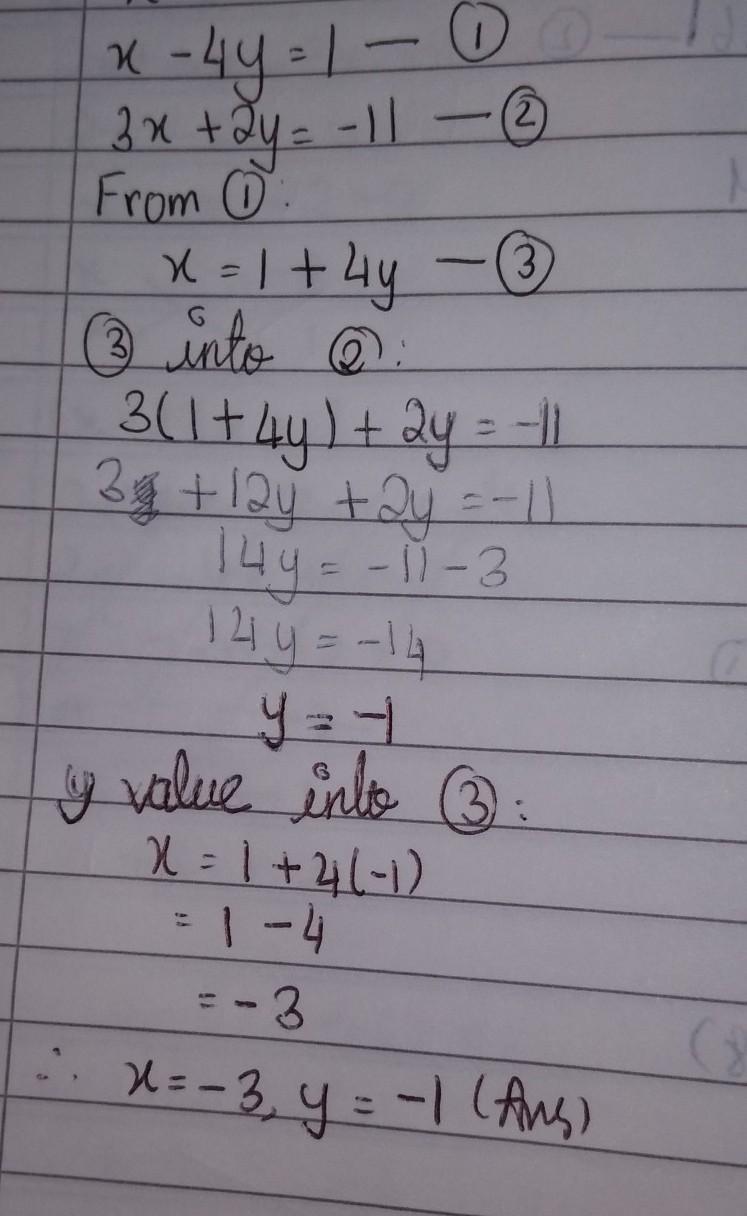 x - 4y = 1 — ①
3x + 2y = -11 — ②
From ①:
x = 1 + 4y — ③
③ into ②:
3(1 + 4y) + 2y = -11
3 + 12y + 2y = -11
14y = -11 - 3
14y = -14
y = -1
y value into ③:
x = 1 + 4(-1)
= 1 - 4
= -3
∴ x = -3, y = -1 (Ans)